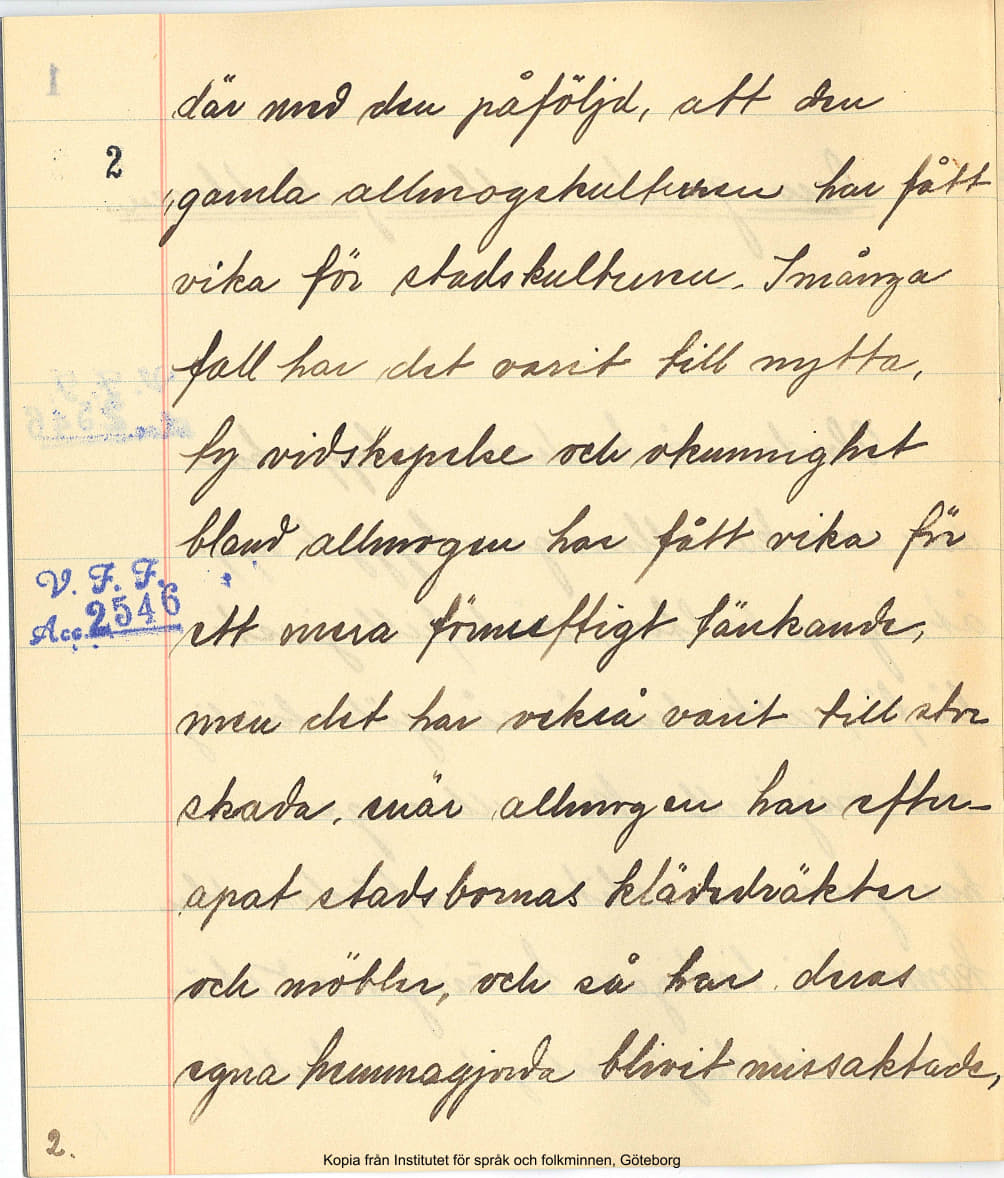 2
där med den påföljd, att den
gamla allmogekulturen har fått
vika för stadskulturen. I många
fall har det varit till nytta,
ty vidskepelse och okunnighet
bland allmogen har fått vika för
V. F. F.
Acc. 2546
ett mera förnuftigt tänkande,
men det har också varit till stor
skada, när allmogen har efter-
apat stadsbornas klädedräkter
och möbler, och så har deras
egna hemmagjorda blivit missaktade,
2.
Kopia från Institutet för språk och folkminnen, Göteborg